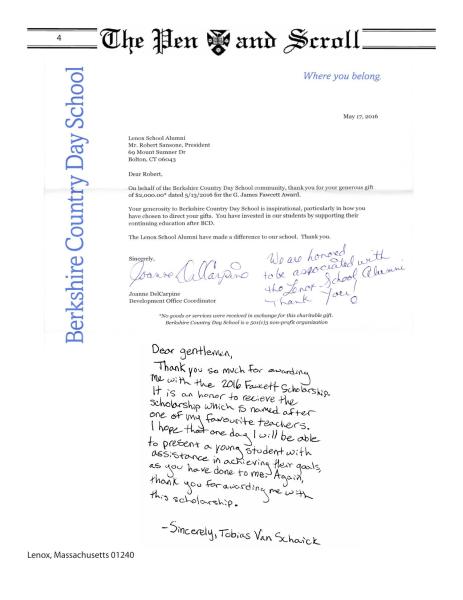 4
The Pen and Scroll
Where you belong.
Berkshire Country Day School
May 17, 2016
Lenox School Alumni
Mr. Robert Sansone, President
69 Mount Sumner Dr
Bolton, CT 06043
Dear Robert,
On behalf of the Berkshire Country Day School community, thank you for your generous gift
of $2,000.00* dated 5/13/2016 for the G. James Fawcett Award.
Your generosity to Berkshire Country Day School is inspirational, particularly in how you
have chosen to direct your gifts. You have invested in our students by supporting their
continuing education after BCD.
The Lenox School Alumni have made a difference to our school. Thank you.
Sincerely,
Joanne DelCarpino
We are honored
to be associated with
the Lenox School Alumni
Thank You!
Joanne DelCarpine
Development Office Coordinator
*No goods or services were received in exchange for this charitable gift.
Berkshire Country Day School is a 501(c)3 non-profit organization
Dear gentlemen,
Thank you so much for awarding
me with the 2016 Fawcett Scholarship.
It is an honor to recieve the
scholarship which is named after
one of my favourite teachers.
I hope that one day I will be able
to present a young student with
assistance in achieving their goals,
as you have done to me. Again,
thank you for awarding me with
this scholarship.
-Sincerely, Tobias Van Schaick
Lenox, Massachusetts 01240